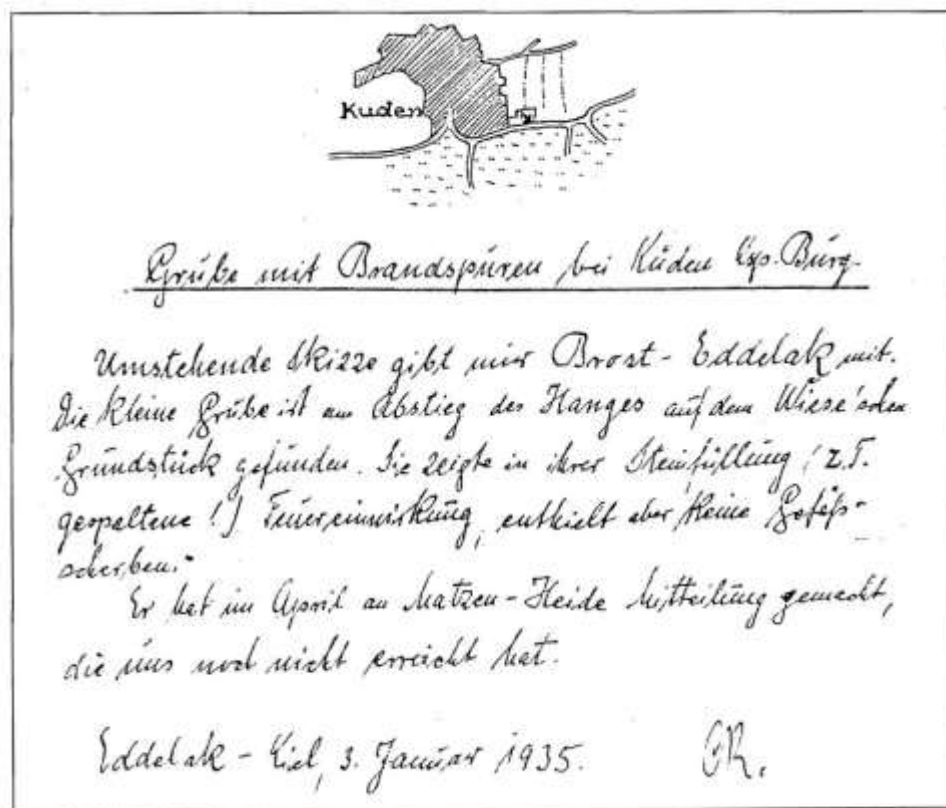 Kuden
Grube mit Brandspuren bei Kuden Ksp. Burg.
Umstehende Skizze gibt mir Brost-Eddelak mit.
Die kleine Grube ist am Abstieg des Hanges auf dem Wiese'schen
Grundstück gefunden. Sie zeigte in ihrer Steinfüllung (z.T.
gespaltene!) Feuereinwirkung, enthielt aber keine Gefäß-
scherben.-
Er hat im April an Matzen-Heide Mitteilung gemacht,
die uns noch nicht erreicht hat.
Eddelak - Kiel, 3. Januar 1935. GR.